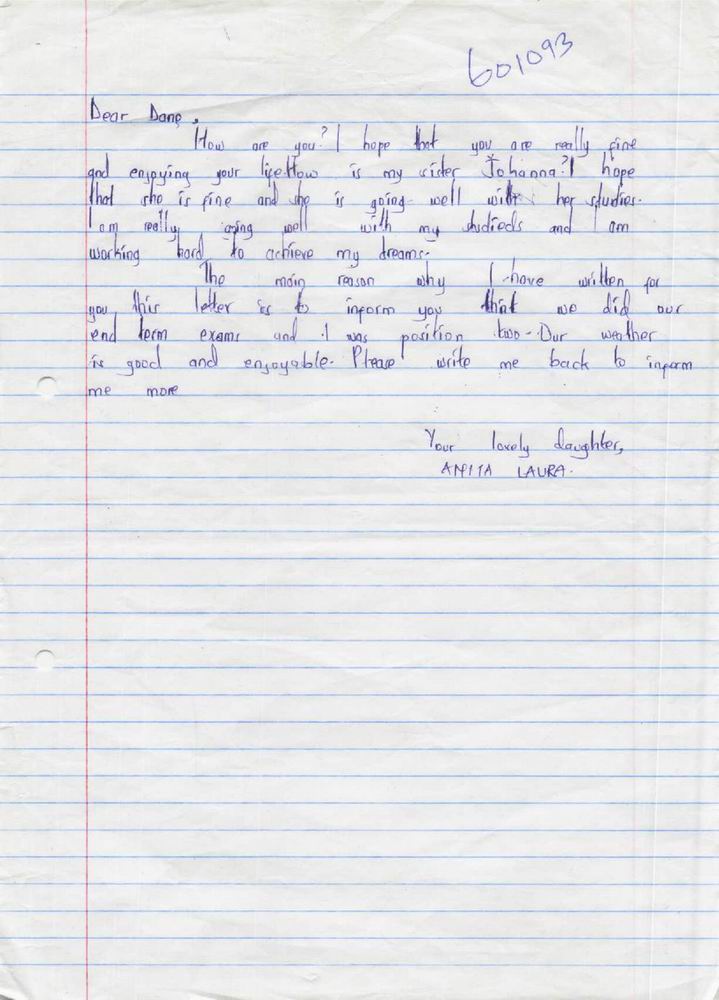 601093
Dear Dane,
How are you? I hope that you are really fine
and enjoying your life.How is my sister Johanna?I hope
that she is fine and she is going well with her studies.
I am really going well with my studieds and I am
working hard to achieve my dreams.
The main reason why I have written for
you this letter is to inform you that we did our
end term exams and I was position two. Our weather
is good and enjoyable. Please write me back to inform
me more
Your lovely daughter,
ANITA LAURA.